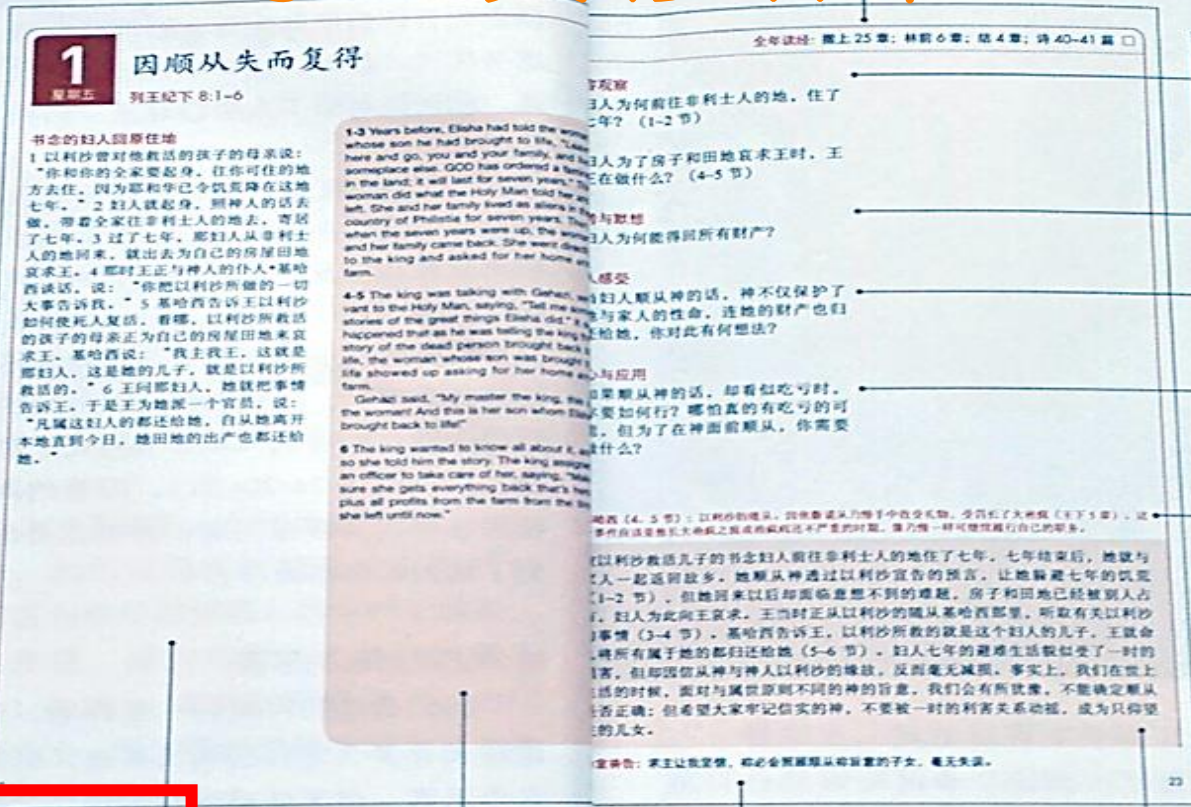 1
星期五
因顺从失而复得
列王纪下 8:1-6
书念的妇人回原住地
1 以利沙曾对他救活的孩子的母亲说：
“你和你的全家要起身，往你可住的地
方去住，因为耶和华已令饥荒降在这地
七年。” 2 妇人就起身，照神人的话去
做，带着全家往非利士人的地去，寄居
了七年。3 过了七年，那妇人从非利士
人的地回来，就出去为自己的房屋田地
哀求王。4 那时王正与神人的仆人*基哈
西谈话，说：“你把以利沙所做的一切
大事告诉我。” 5 基哈西告诉王以利沙
如何使死人复活，看哪，以利沙所救活
的孩子的母亲正为自己的房屋田地来哀
求王。基哈西说：“我主我王，这就是
那妇人，这是她的儿子，就是以利沙所
救活的。” 6 王问那妇人，她就把事情
告诉王。于是王为她派一个官员，说：
“凡属这妇人的都还给她，自从她离开
本地直到今日，她田地的出产也都还给
她。”
1-3 Years before, Elisha had told the
whose son he had brought to life,
here and go, you and your family, and
someplace else. GOD has ordered a
in the land; it will last for seven years."
woman did what the Holy Man told her
left. She and her family lived as aliens in
country of Philistia for seven years.
when the seven years were up, the
and her family came back. She went
to the king and asked for her home
farm.
4-5 The king was talking with Gehazi,
vant to the Holy Man, saying, "Tell me
stories of the great things Elisha did." It
happened that as he was telling the king
story of the dead person brought back
life, the woman whose son was brought
life showed up asking for her home
farm.
Gehazi said, "My master the king,
the woman! And this is her son whom
brought back to life!"
6 The king wanted to know all about it,
so she told him the story. The king
an officer to take care of her, saying,
sure she gets everything back that's
plus all profits from the farm from the
she left until now."
全年读经: 撒上 25 章; 林前 6 章; 结 4 章; 诗 40-41 篇
观察
妇人为何前往非利士人的地，住了
年？ (1-2 节)
妇人为了房子和田地哀求王时，王
在做什么？ (4-5 节)
与默想
妇人为何能得回所有财产？
感受
妇人顺从神的话，神不仅保护了
与家人的性命，连她的财产也归
给她，你对此有何想法？
与应用
果顺从神的话，却看似吃亏时，
要如何行？哪怕真的有吃亏的可
，但为了在神面前顺从，你需要
什么？
以利沙救活儿子的书念妇人前往非利士人的地住了七年，七年结束后，她就与
人一起返回故乡。她顺从神透过以利沙宣告的预言，让她躲避七年的饥荒
(1-2 节)，但她回来以后却面临意想不到的难题，房子和田地已经被别人占
，妇人为此向王哀求。王当时正从以利沙的随从基哈西那里，听取有关以利沙
事情 (3-4 节)。基哈西告诉王，以利沙所救的就是这个妇人的儿子，王就命
将所有属于她的都归还给她 (5-6 节)。妇人七年的避难生活貌似受了一时的
害，但却因信从神与神人以利沙的缘故，反而毫无减损。事实上，我们在世上
活的时候，面对与属世原则不同的神的旨意，我们会有所犹豫，不能确定顺从
否正确；但希望大家牢记信实的神，不要被一时的利害关系动摇，成为只仰望
的儿女。
祷告: 求主让我坚信，祢必会照顾顺从祢旨意的子女，毫无失误。
23